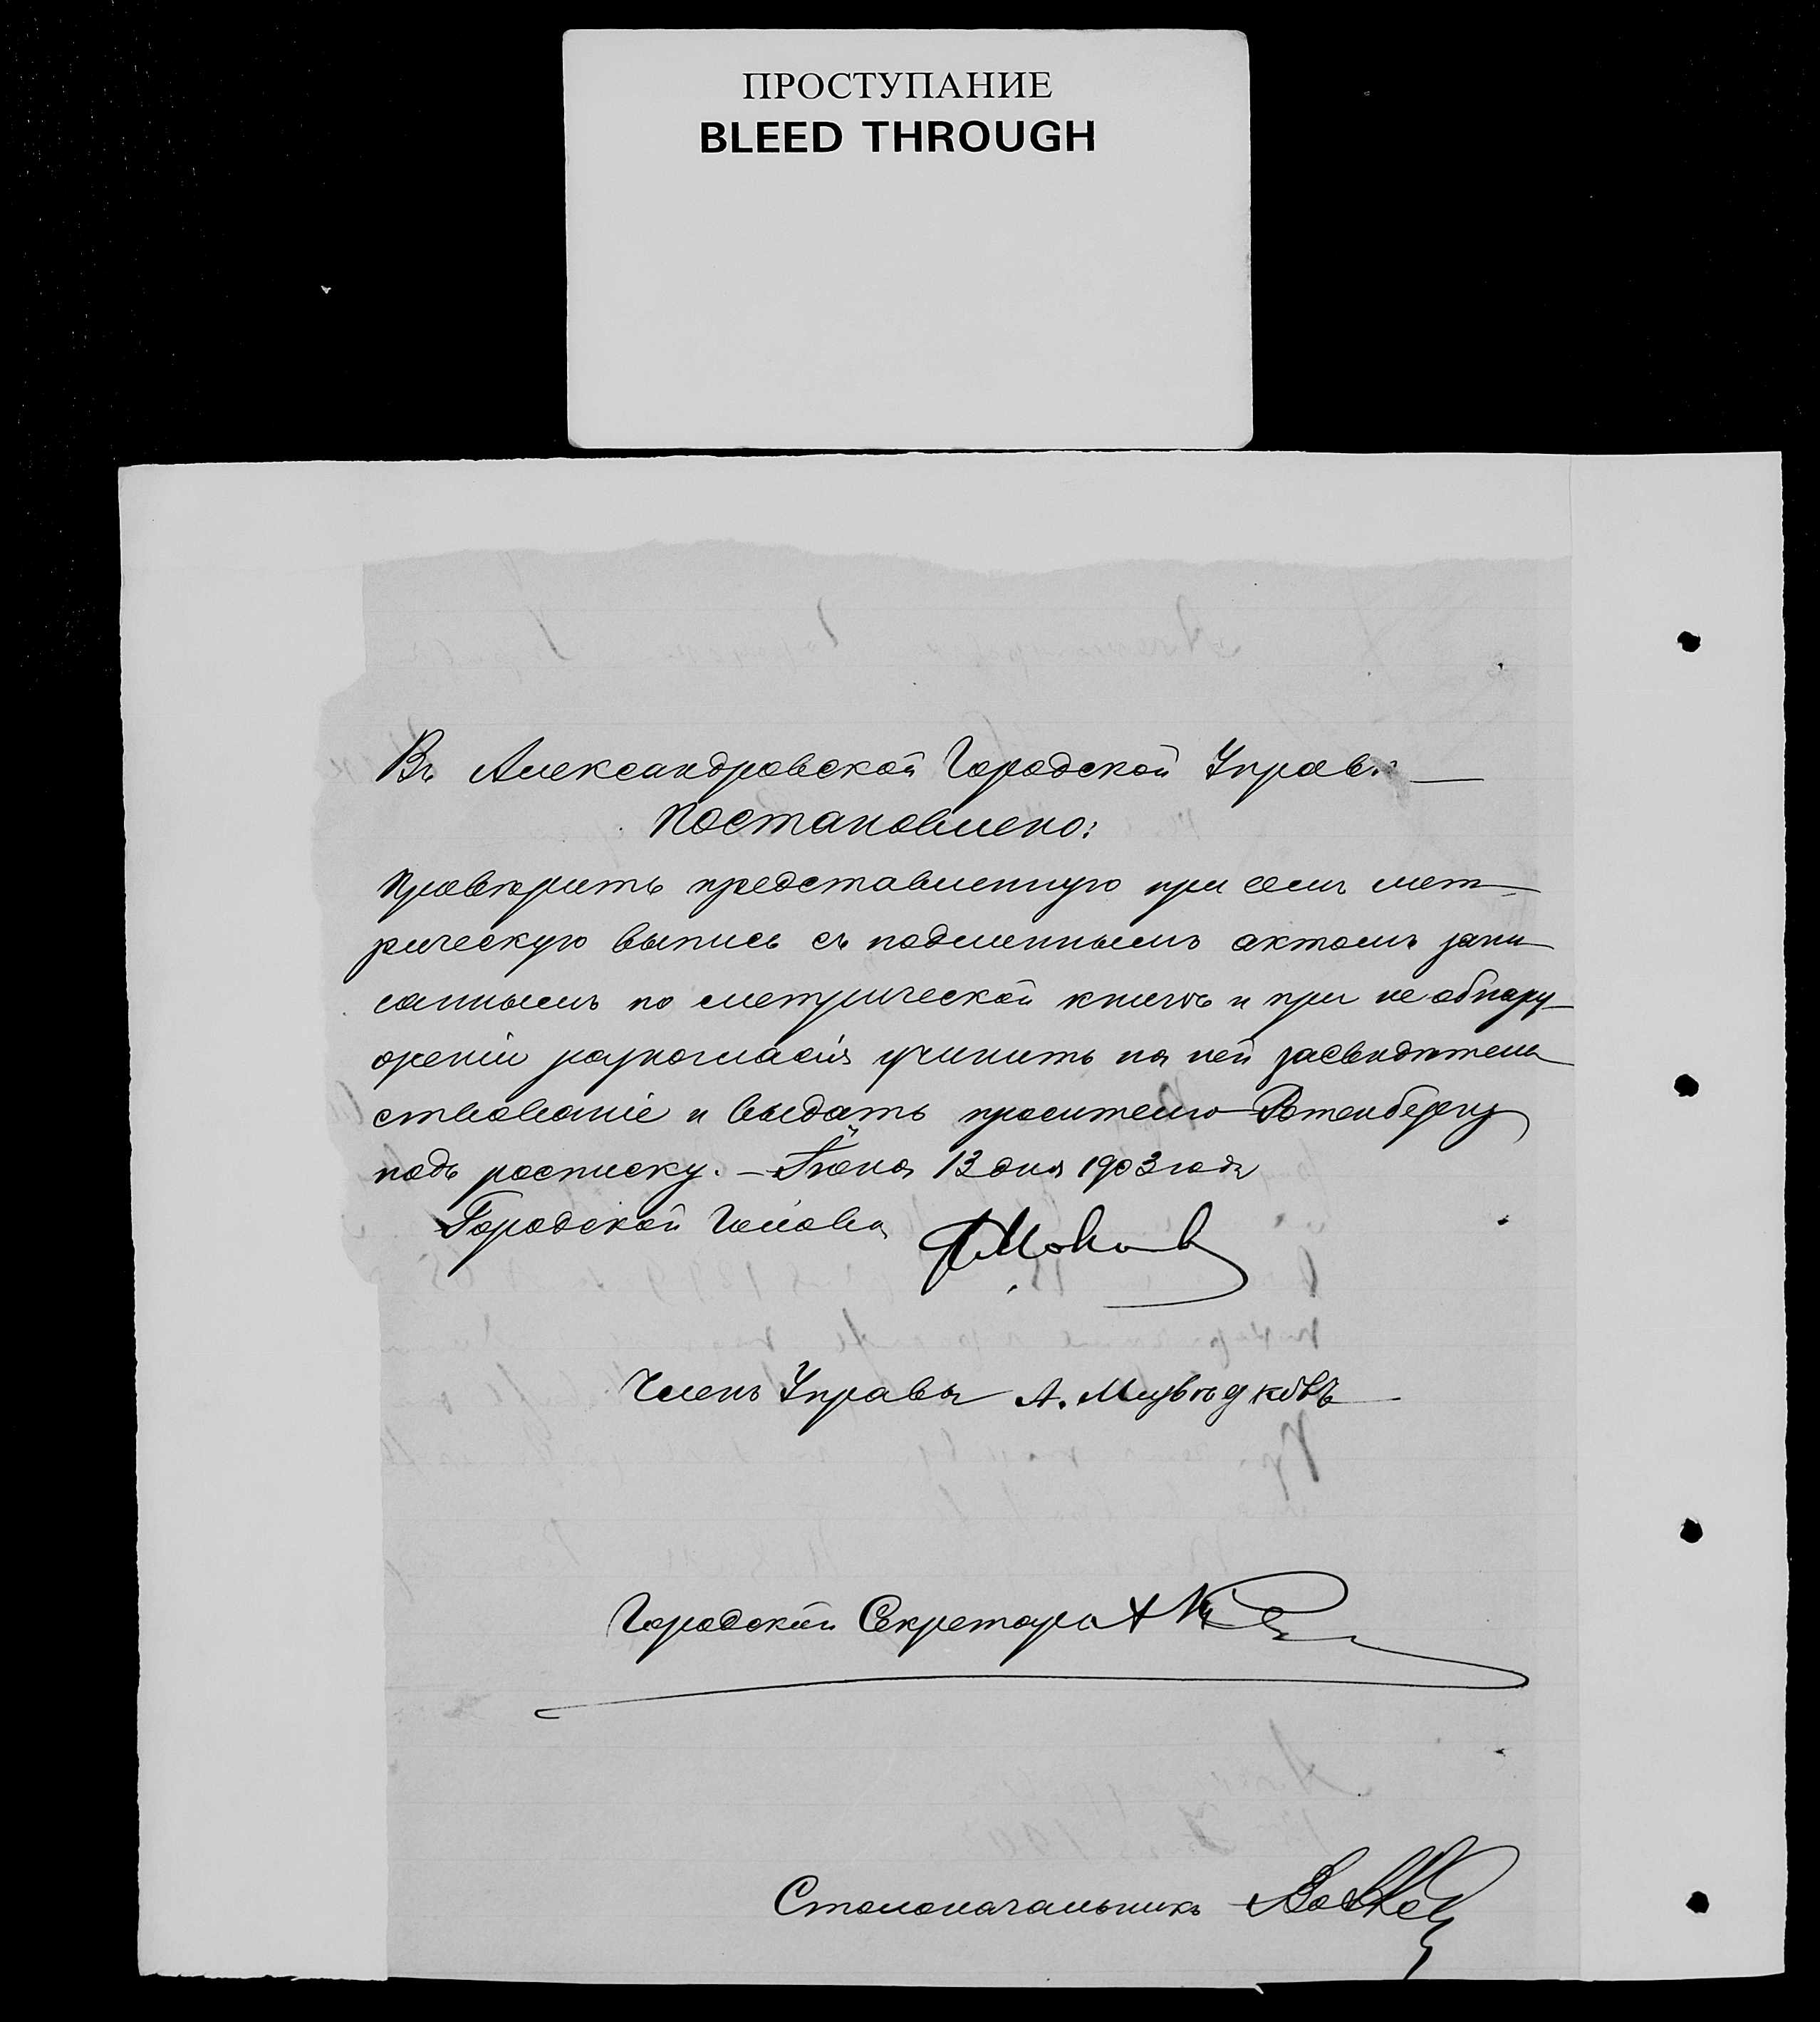 ПРОСТУПАНИЕ
BLEED THROUGH
Въ Александровской Городской Управѣ
Постановлено:
Провѣрить представленную при семъ мет-
рическую выпись съ подлиннымъ актомъ запи
саннымъ по метрической книгѣ и при не обнару-
женіи разногласія учинить на ней засвидѣтель
ствованіе и выдать просителю Ротенбергу
подъ росписку. – Іюня 13 дня 1903 года
Городской Голова
Членъ Управы А.
Городской Секретарь
Столоначальникъ